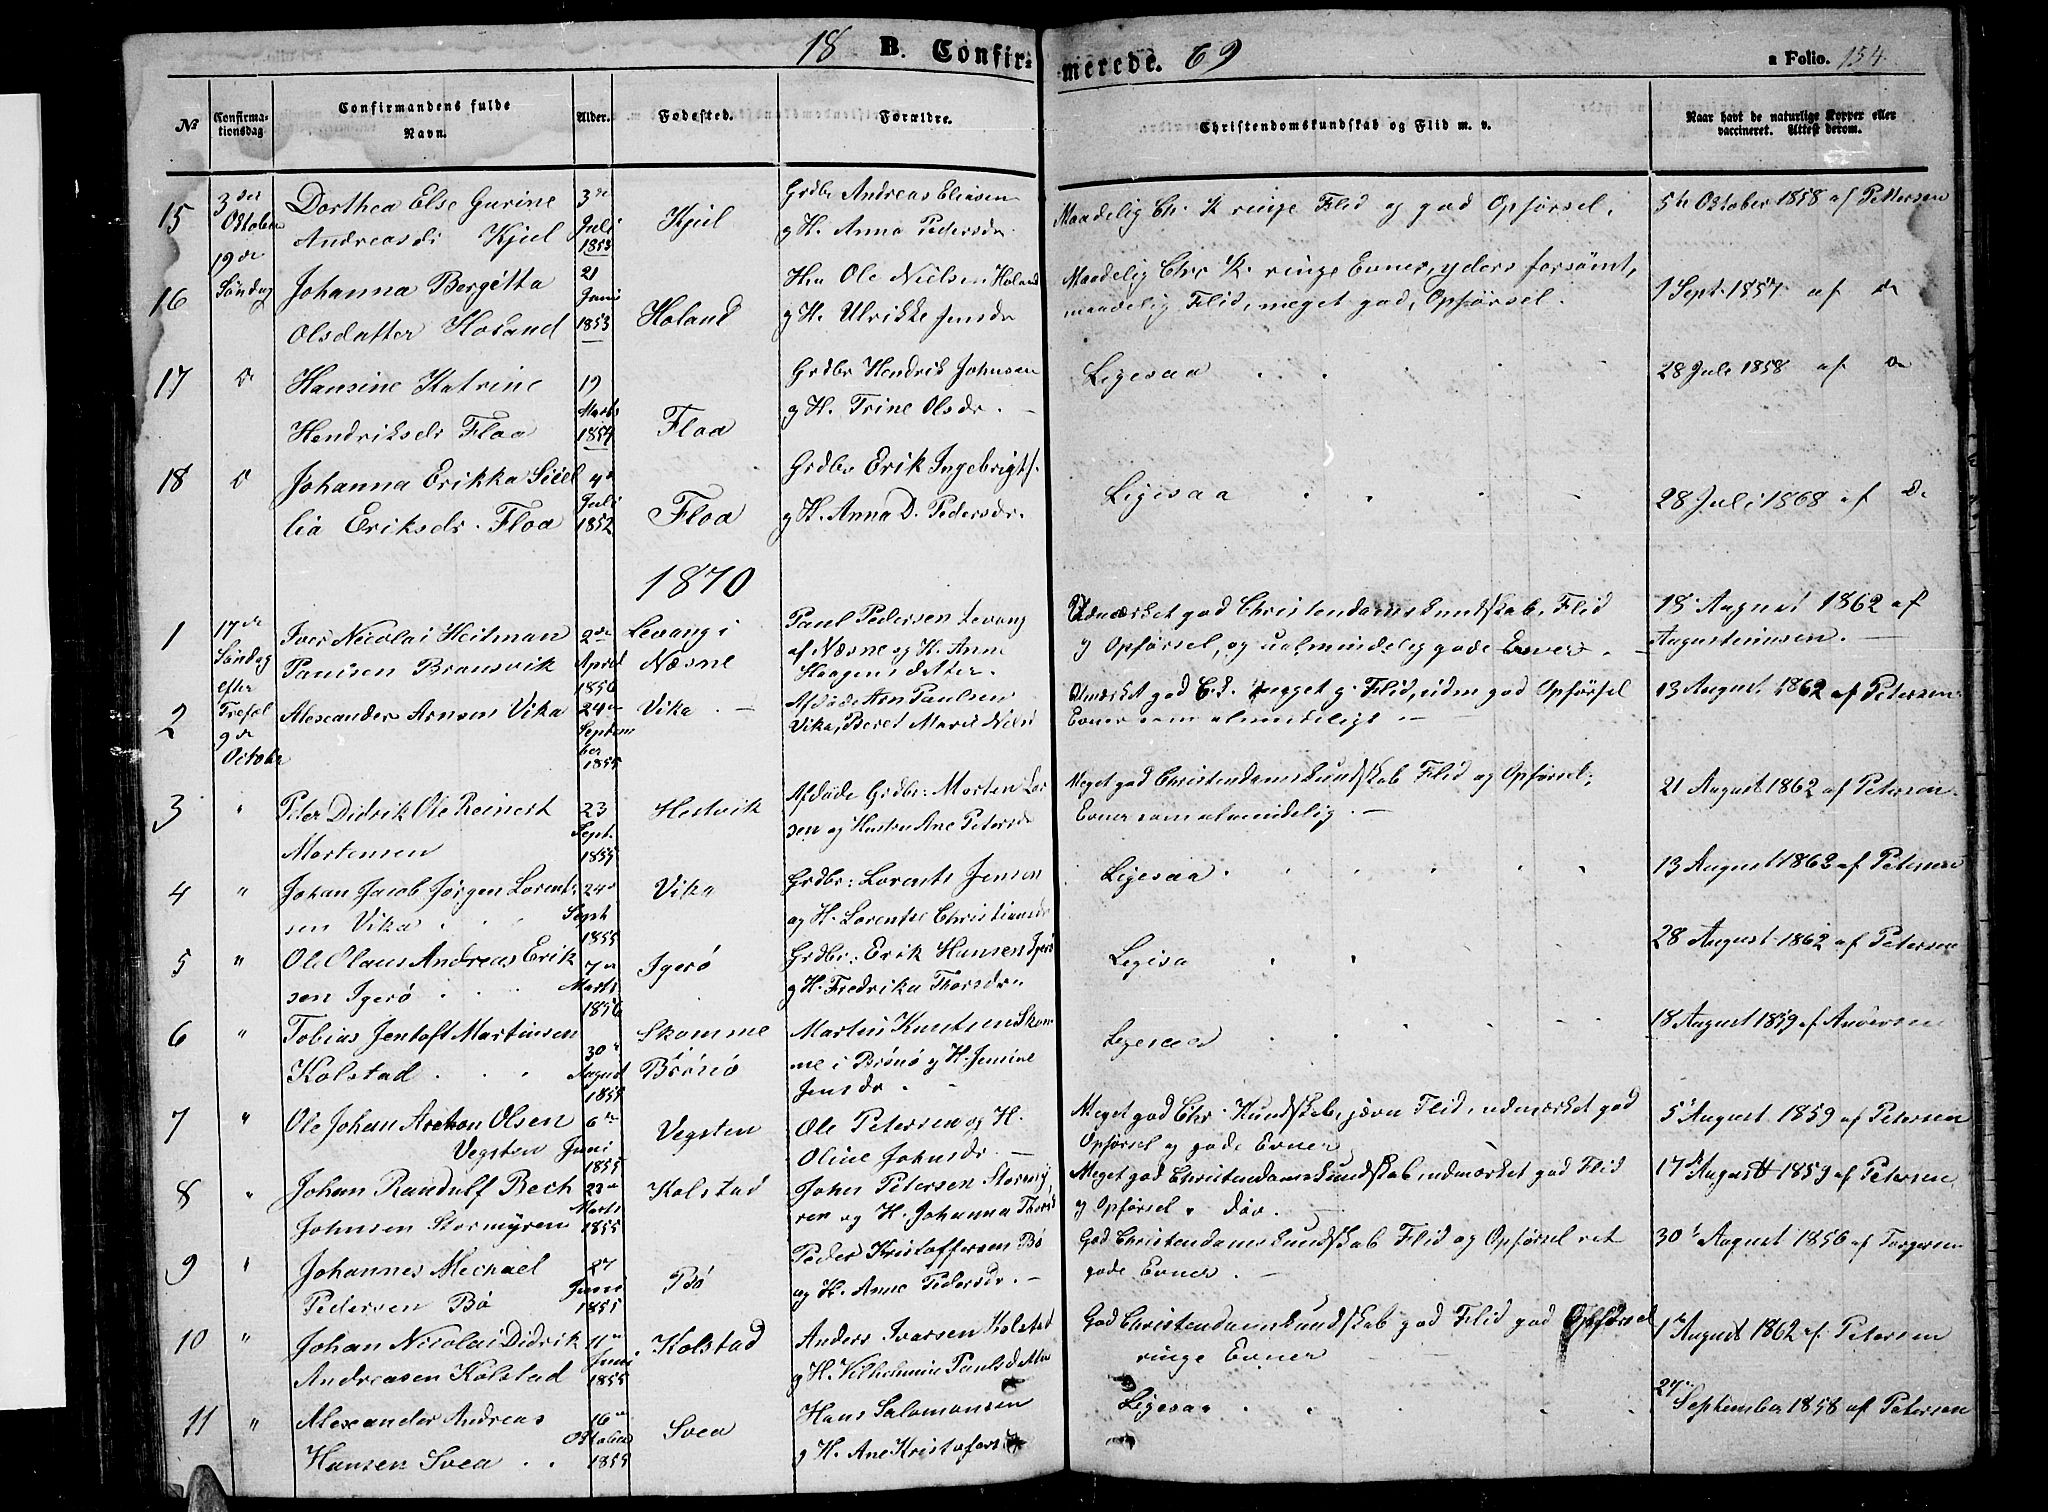 18 B. Confirmerede. 69
a Folio. 154
№
Confirmationsdag.
Confirmandens fulde Navn.
Alder.
Fødested.
Forældre.
Christendomskundskab og Flid m. v.
Naar havt de naturlige Kopper eller vaccineret. Attest derom.
15 3die Oktober 19de Søndag
Dorthea Else Gurine
Andreasdr Kjul
3de Juli 1853
Kjul
Grdbr Andreas Eliasen
g H. Anna Pedersdr
Maadelig Ch. K ringe Flid og god Opførsel.
5te Oktober 1858 af Pettersen
16
Johanna Bergitta
Olsdatter Holand
21 Juni 1853
Holand
Ole Nielsen Holand
g H. Ulrikke Jensdr
Maadelig Chr K. ringe Evner, yders forsømt,
maadelig Flid, meget god, Opførsel.
1 Sept. 1857 af do
17 do
Hansine Katrine
Hendriksdr Floa
19 Marts 1854
Floa
Grdbr Hendrik Johnsen
g H. Trine Olsdr.
Ligesaa
28 Juli 1858 af do
18 do
Johanna Erikka Sisel
lia Eriksdr. Floa
4de Juli 1852
Floa
Grdbr Erik Ingebrigts.
g H. Anna D. Pedersdr.
Ligesaa
28 Juli 1868 af do
1870
1 17de Søndag efter Trefol 9de October
Iver Nicolai Heitman
Paulsen Bransvik
2de April 1856
Levang i
Næsne
Paul Pedersen Levang
af Næsne og H. Ane
Haagensdatter.
Udmærket god Christendomskundskab, Flid
g Opførsel, og ualmindelig gode Evner.
18 August 1862 af
Augustinusen.
2
Alexander Arnsen Vika
24de September 1855
Vika
Afdøde Arn Paulsen
Vika, Beret Marie Niels
Evner som almindeligt
13 August 1862 af Petersen
3 "
Peter Didrik Ole Reinert
Mortensen
23 Sept. 1855
Hestvik
Afdøde Grdbr: Morten Lar
sen og Hustru Ane Petersdr
Meget god Christendomskundskab Flid og Opførsel,
Evner som almindelig.
21 August 1862 af Petersen
4 "
Johan Jacob Jørgen Lorent
sen Vika
24de Sept 1855
Vika
Grdbr: Lorents Jensen
og H. Lorentse Christiansdr
Ligesaa
13 August 1862 af Petersen
5 "
Ole Olaus Andreas Erik
sen Igerø
7de Marts 1856
Igerø
Grdbr: Erik Hansen Igerø
g H. Fredrika Thorsdr
Ligesa
28 August 1862 af Petersen
6 "
Tobias Jentoft Martinsen
Kolstad
30te August
Skomme
Brønø
Martin Knutsen Skom
me i Brønø g H. Jensine
Jensdr
Ligesaa
18 August 1859 af Andersen
7 "
Ole Johan Arthon Olsen
Vegsten
6te Juni 1855
Vegsten
Ole Petersen og H.
Oline Johnsdr.
Meget god Chr. Kundskab, jævn Flid, udmærket god
Opførsel og gode Evner
5 August 1859 af Petersen
8 "
Johan Randulf Bech
Johnsen Stormyren
23de Marts 1855
Kolstad
John Petersen Stormy,
ren og H. Johanna Thorsd
Meget god Christendomskundskab, udmærket god Flid
g Opførsel. døv.
17 August 1859 af Petersen
9 "
Johannes Mechael
Pedersen Bø
27 Juni 1855
Bø
Peder Kristoffersen Bø
og H. Anne Pedersdr.
God Christendomskundskab Flid og Opførsel ret
gode Evner.
30 August 1856 af Torgersen
10 "
Johan Nicolai Didrik
Andreasen Kolstad
11te Juni 1855
Kolstad
Anders Ivarsen Kolstad
g H. Vilhelmine Paulsdatter
God Christendomskundskab god Flid god Opførsel
ringe Evner
1 August 1862 af Petersen
11 "
Alexander Andreas
Hansen Svea
16de Oktober 1855
Svea
Hans Salomonsen
g H. Ane Kristofers
Ligesaa
27 September 1858 af Petersen